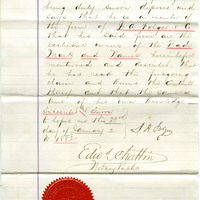 being duly sworn deposes and
says that he is a member of
the firm of
that his said firm are the
exclusive owners of the Trade
Mark and Name herein
mentioned and described that
he has read the foregoing
claim and knows the contents
thereof and that the same is
true of his own knowledge
Subscribed & Sworn
to before me this 22nd
day of January
Edw. L. Chatten
Notary Public